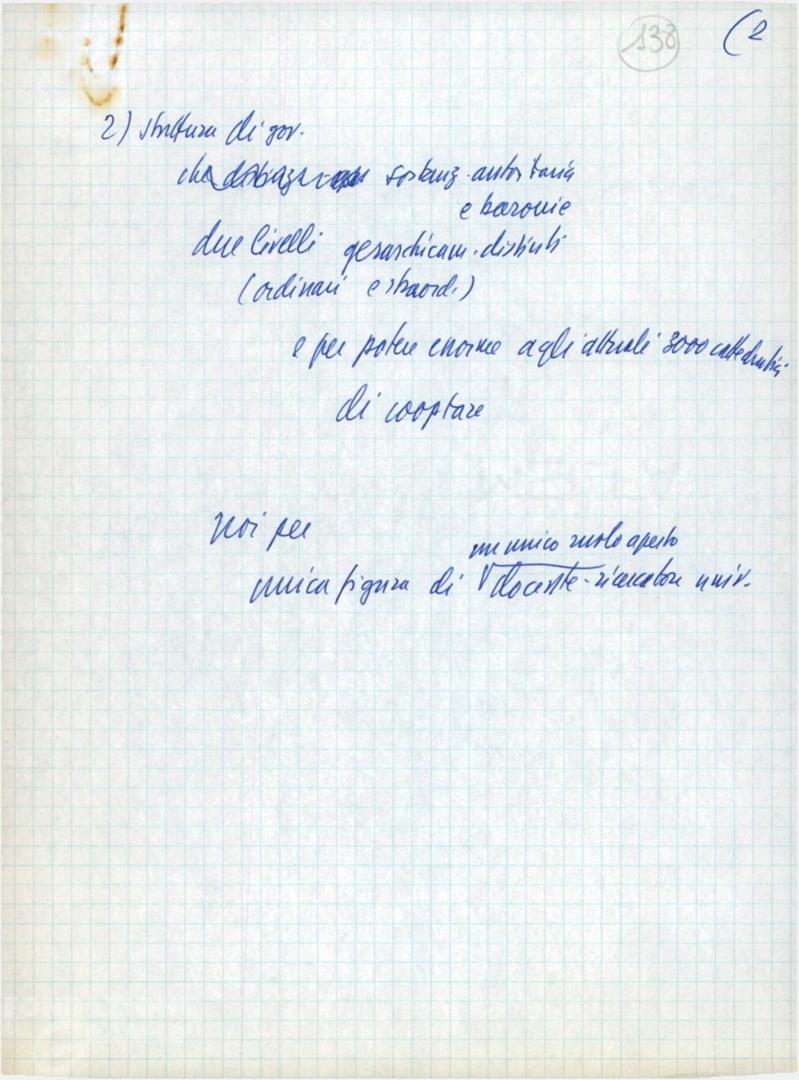 138
(2
2) struttura di gov.
che sostanz. autoritaria
e baronie
due livelli gerarchicam. distinti
(ordinari e straord.)
e per potere enorme agli attuali 3000 cattedratici
di cooptare
noi per
un unico ruolo aperto
unica figura di docente-ricercatore univ.